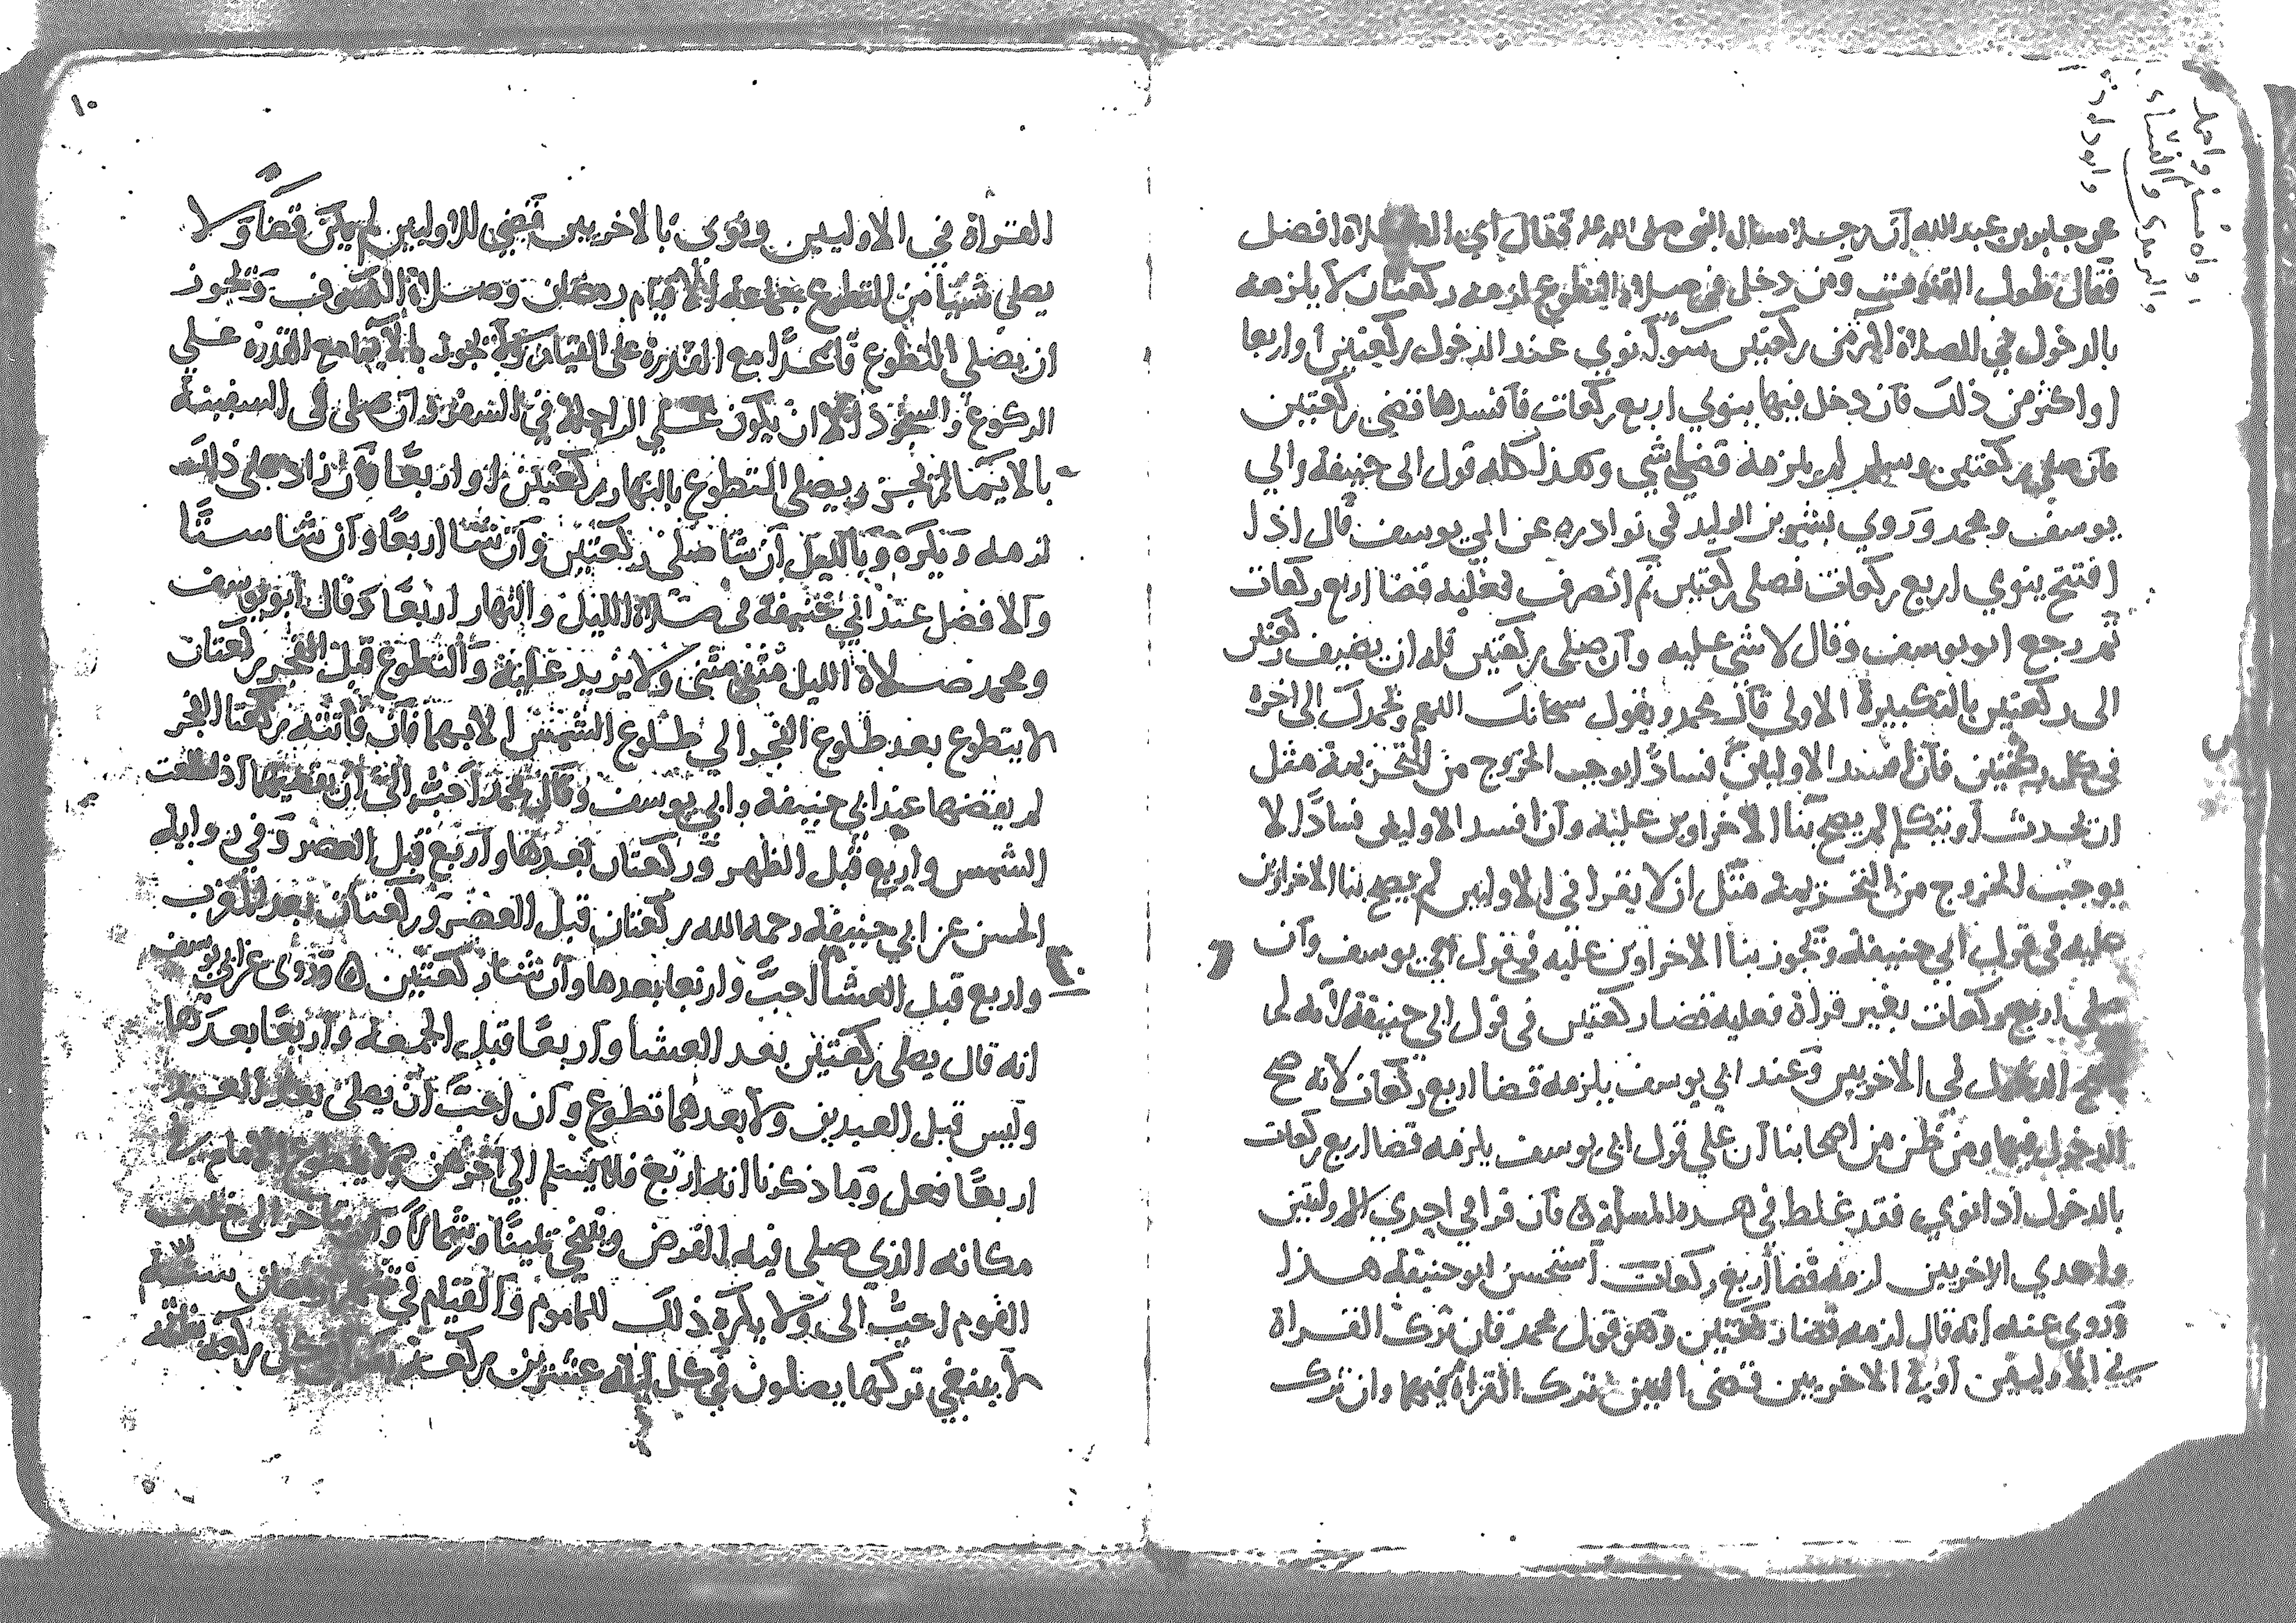 عن جابر بن عبد الله أن رجلا سال النبي صلى الله عليه فقال أي الصلاة افضل
فقال طول القنوت ومن دخل في صلاة التطوع لزمه ركعتان لا يلزمه
بالدخول في الصلاة اكثر من ركعتين سوا نوي عند الدخول ركعتين أو اربعا
او اكثر من ذلك فان دخل فيها ينوي اربع ركعات فأفسدها قضى ركعتين
فان صلى ركعتين وسلم لم يلزمه قضا شي وهذا كله قول ابي حنيفة وابي
يوسف ومحمد وروي بشر بن الوليد في نوادره عن ابي يوسف قال اذا
افتتح ينوي اربع ركعات فصلى ركعتين ثم انصرف فعليه قضا اربع ركعات
ثم رجع ابو يوسف وقال لا شي عليه وان صلى ركعتين فله ان يضيف ركعتين
الى ركعتين بالتكبيرة الاولى قال محمد ويقول سبحانك اللهم وبحمدك الى اخره
في كل ركعتين فان افسد الاوليين فسادا يوجب الخروج من التحريمة مثل
ان يحدث أو يتكلم لم يصح بنا الاخراوين عليه وان افسد الاوليين فسادا لا
يوجب الخروج من التحريمة مثل ان لا يقرا في الاوليين لم يصح بنا الاخراوين
عليه في قول ابي حنيفة ويجوز بنا الاخراوين عليه في قول ابي يوسف وان
صلى اربع ركعات بغير قراة فعليه قضا ركعتين في قول ابي حنيفة لأنه لم
يصح الدخول في الاخريين وعند ابي يوسف يلزمه قضا اربع ركعات لانه صح
الدخول فيها ومن ظن من اصحابنا أن علي قول ابي يوسف يلزمه قضا اربع ركعات
بالدخول اذا نوي فقد غلط في هذه المسلة ه فان قرا في احدي الاوليين
واحدي الاخريين لزمه قضا أربع ركعات استحسن ابو حنيفة هذا
وروي عنه انه قال لزمه قضا ركعتين وهو قول محمد فان ترك القراة
في الأوليين أو في الاخريين قضى اللتين ترك القراة فيهما وان ترك
١٠
القراة في الاوليين ونوى بالاخريين قضى الاوليين لم يكن قضا ولا
يصلى شيا من التطوع بجماعة إلا قيام رمضان وصلاة الكسوف ويجوز
ان يصلي التطوع قاعدا مع القدرة على القيام ولا يجوز بالايما مع القدرة علي
الركوع والسجود الا ان يكون على الراحلة في السفر وان صلى في السفينة
بالايما لم يجز ويصلي التطوع بالنهار ركعتين او اربعا فان زاد على ذلك
لزمه ويكره وبالليل ان شا صلى ركعتين وان شا اربعا وان شا ستا
والافضل عند ابي حنيفة في صلاة الليل والنهار اربعا وقال ابو يوسف
ومحمد صلاة الليل مثنى مثنى ولا يزيد عليه والتطوع قبل الفجر ركعتان
لا يتطوع بعد طلوع الفجر الي طلوع الشمس الا بهما فان فاتته ركعتا الفجر
لم يقضها عند ابي حنيفة وابي يوسف وقال محمد احب الى ان يقضيهما اذا طلعت
الشمس واربع قبل الظهر وركعتان بعدها واربع قبل العصر وفي رواية
الحسن عن ابي حنيفة رحمه الله ركعتان قبل العصر وركعتان بعد المغرب
واربع قبل العشا احب واربعا بعدها وان شا ركعتين ه وروى عن ابي يوسف
انه قال يصلى ركعتين بعد العشا وأربعا قبل الجمعة وأربعا بعدها
وليس قبل العيدين ولا بعدهما تطوع وان احب ان يصلي بعد العيد
اربعا فعل وما ذكرنا انه اربع فلا يسلم الي اخرهن ولا يتطوع الامام في
مكانه الذي صلى فيه الفرض ويتنحى يمينا وشمالا وان تاخر الى خلف
القوم احب الى ولا يكره ذلك للماموم والقيام في شهر رمضان سنة
لا ينبغي تركها يصلون في كل ليلة عشرين ركعة